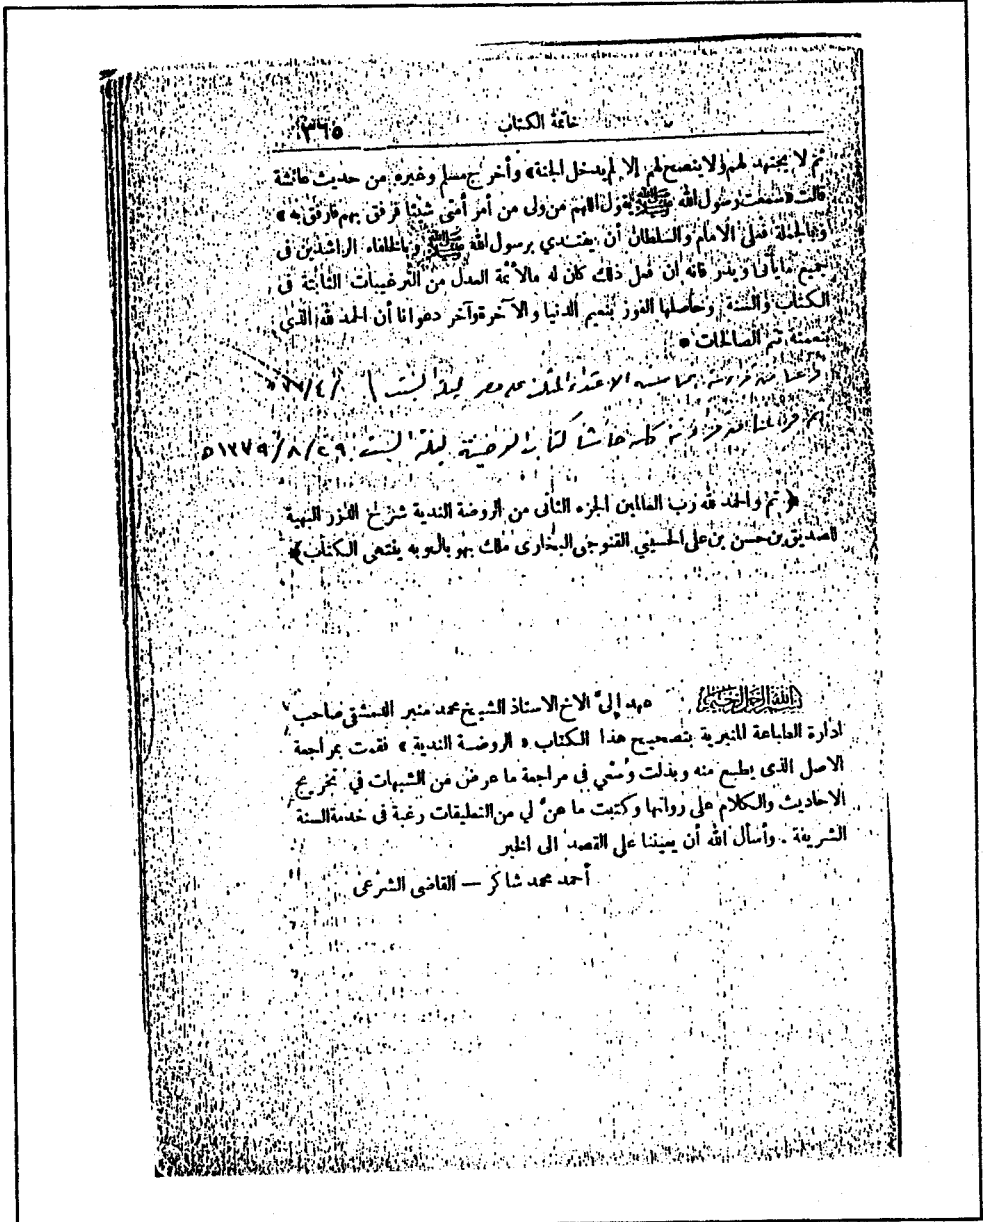 خاتمة الكتاب ٣٦٥
ثم لا يجتهد لهم ولا ينصح لهم إلا لم يدخل الجنة» وأخرج مسلم وغيره من حديث عائشة
قالت «سمعت رسول الله ﷺ يقول اللهم من ولى من أمر أمتى شيئا فرفق بهم فارفق به»
وبالجملة فعلى الامام والسلطان أن يقتدي برسول الله ﷺ وبالخلفاء الراشدين فى
جميع ما يأتى ويذر فانه ان فعل ذلك كان له مالأئمة العدل من الترغيبات الثابتة فى
الكتاب والسنة وحاصلها الفوز بنعيم الدنيا والآخرة وآخر دعوانا أن الحمد لله الذى
بنعمته تتم الصالحات *
من قراءته مصر ليلة السبت
من قراءته كتاب الروضة ليلة السبت ٢٩/٨/١٣٧٩ ه
﴿تم والحمد لله رب العالمين الجزء الثانى من الروضة الندية شرح الدرر البهية
لصديق بن حسن بن على الحسيني القنوجى البخارى ملك بهوبال وبه ينتهى الكتاب﴾
بسم الله الرحمن الرحيم عهد إلىّ الاخ الاستاذ الشيخ محمد منير الدمشقى صاحب
ادارة الطباعة المنيرية بتصحيح هذا الكتاب «الروضة الندية» فقمت بمراجعة
الاصل الذى يطبع منه وبذلت وسعي فى مراجعة ما عرض من الشبهات في تخريج
الاحاديث والكلام على رواتها وكتبت ما عنّ لي من التعليقات رغبة فى خدمة السنة
الشريفة . وأسأل الله أن يعيننا على القصد الى الخير
أحمد محمد شاكر — القاضى الشرعى